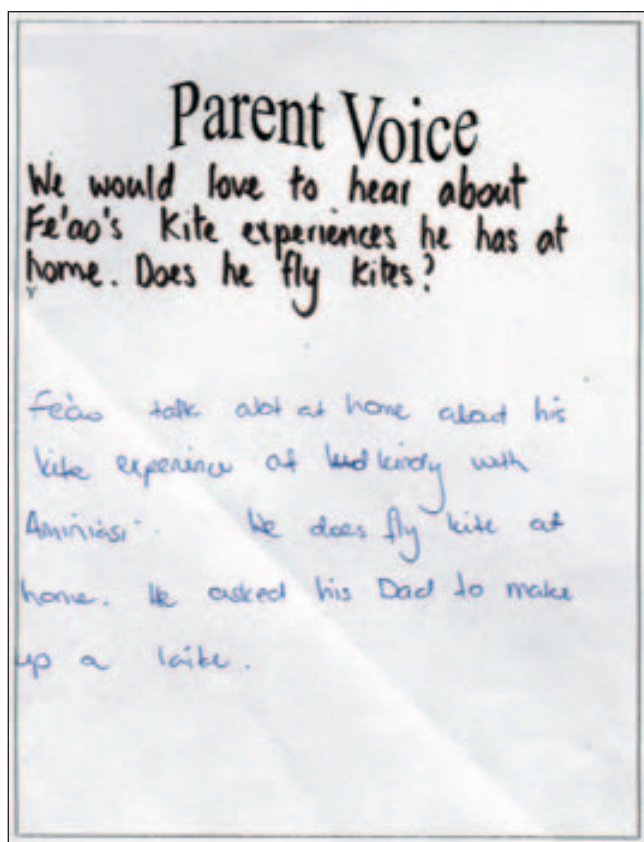 Parent Voice
We would love to hear about
Fe'ao's kite experiences he has at
home. Does he fly kites?
Fe'ao talk alot at home about his
kite experince at kindy with
Aminiasi. He does fly kite at
home. He asked his Dad to make
up a kite.